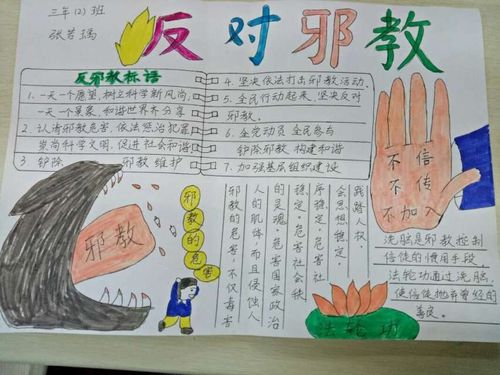 三年(2)班
张芸瑀
反对邪教
反邪教标语
1、一天一个愿望，树立科学新风尚，
一天一个果象，和谐世界齐分享
2、认清邪教危害，依法惩治犯罪
崇尚科学文明，促进社会和谐
3、铲除 邪教 维护
4、坚决依法打击邪教活动。
5、全民行动起来，坚决反对
邪教。
6、全党动员 全民参与
铲除邪教 构建和谐
7、加强基层组织建设
不信
不传
不加入
邪教
邪教的危害
践踏人权、
会思想稳定。
序稳定。危害社
稳定。危害社会秩
的灵魂。危害国家政治
人的肌体，而且侵蚀人
邪教的危害，不仅毒害
洗脑是邪教控制
信徒的惯用手段，
法轮功通过洗脑，
使信徒抛弃曾经的
善良。
法轮功